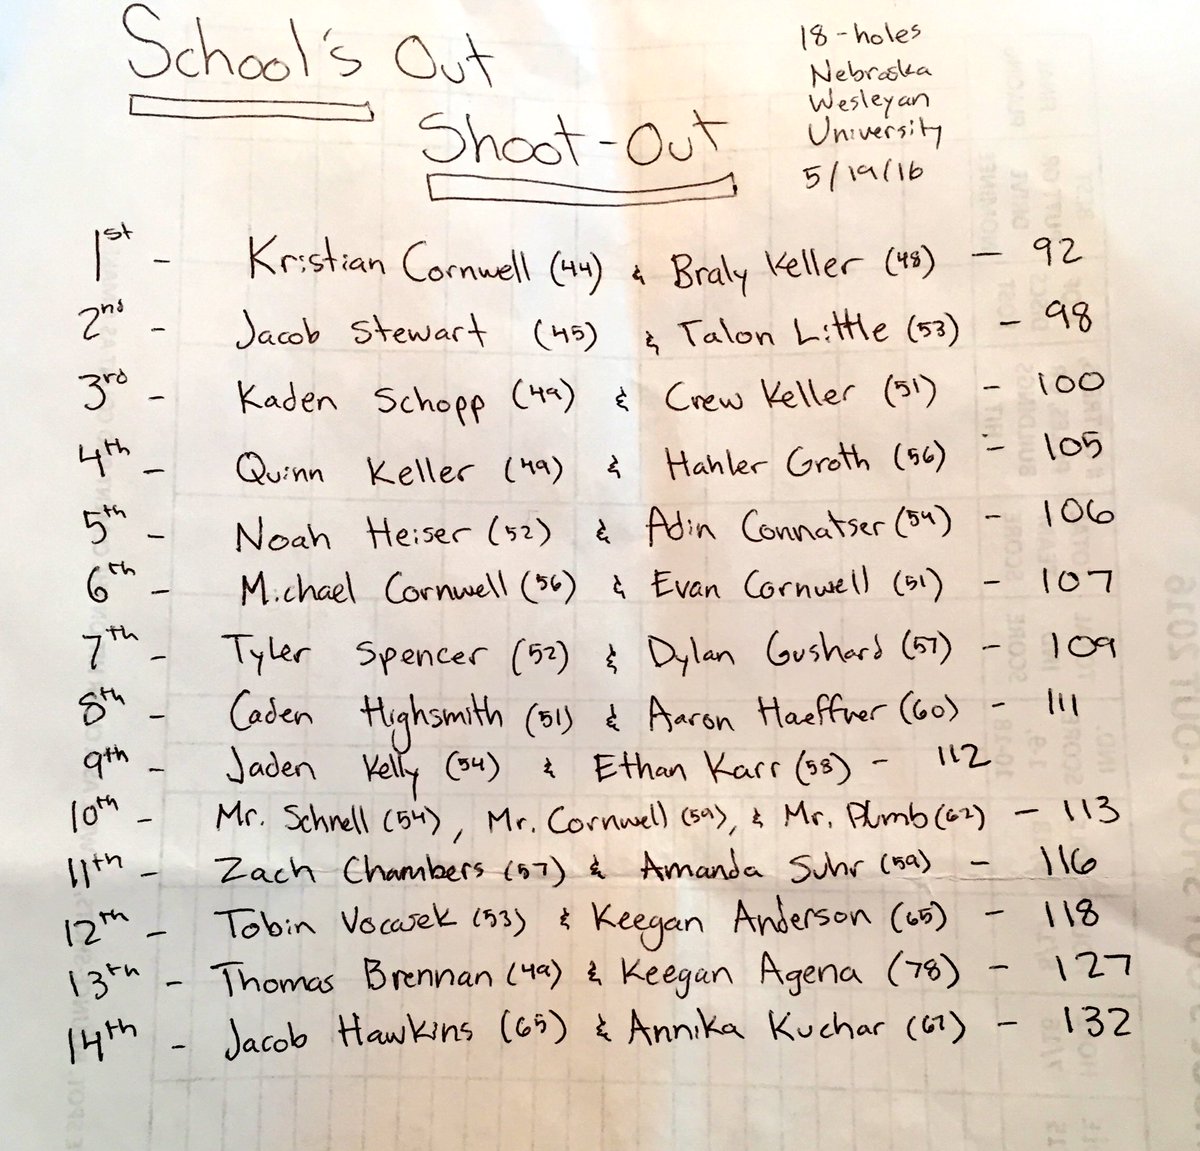 School's Out
Shoot-Out
18-holes
Nebraska
Wesleyan
University
5/19/16
1st - Kristian Cornwell (44) & Braly Keller (48) - 92
2nd - Jacob Stewart (45) & Talon Little (53) - 98
3rd - Kaden Schopp (49) & Crew Keller (51) - 100
4th - Quinn Keller (49) & Hahler Groth (56) - 105
5th - Noah Heiser (52) & Adin Connatser (54) - 106
6th - Michael Cornwell (56) & Evan Cornwell (51) - 107
7th - Tyler Spencer (52) & Dylan Gushard (57) - 109
8th - Caden Highsmith (51) & Aaron Haeffner (60) - 111
9th - Jaden Kelly (54) & Ethan Karr (58) - 112
10th - Mr. Schnell (54), Mr. Cornwell (59), & Mr. Plumb (62) - 113
11th - Zach Chambers (57) & Amanda Suhr (59) - 116
12th - Tobin (53) & Keegan Anderson (65) - 118
13th - Thomas Brennan (49) & Keegan Agena (78) - 127
14th - Jacob Hawkins (65) & Annika Kuchar (67) - 132